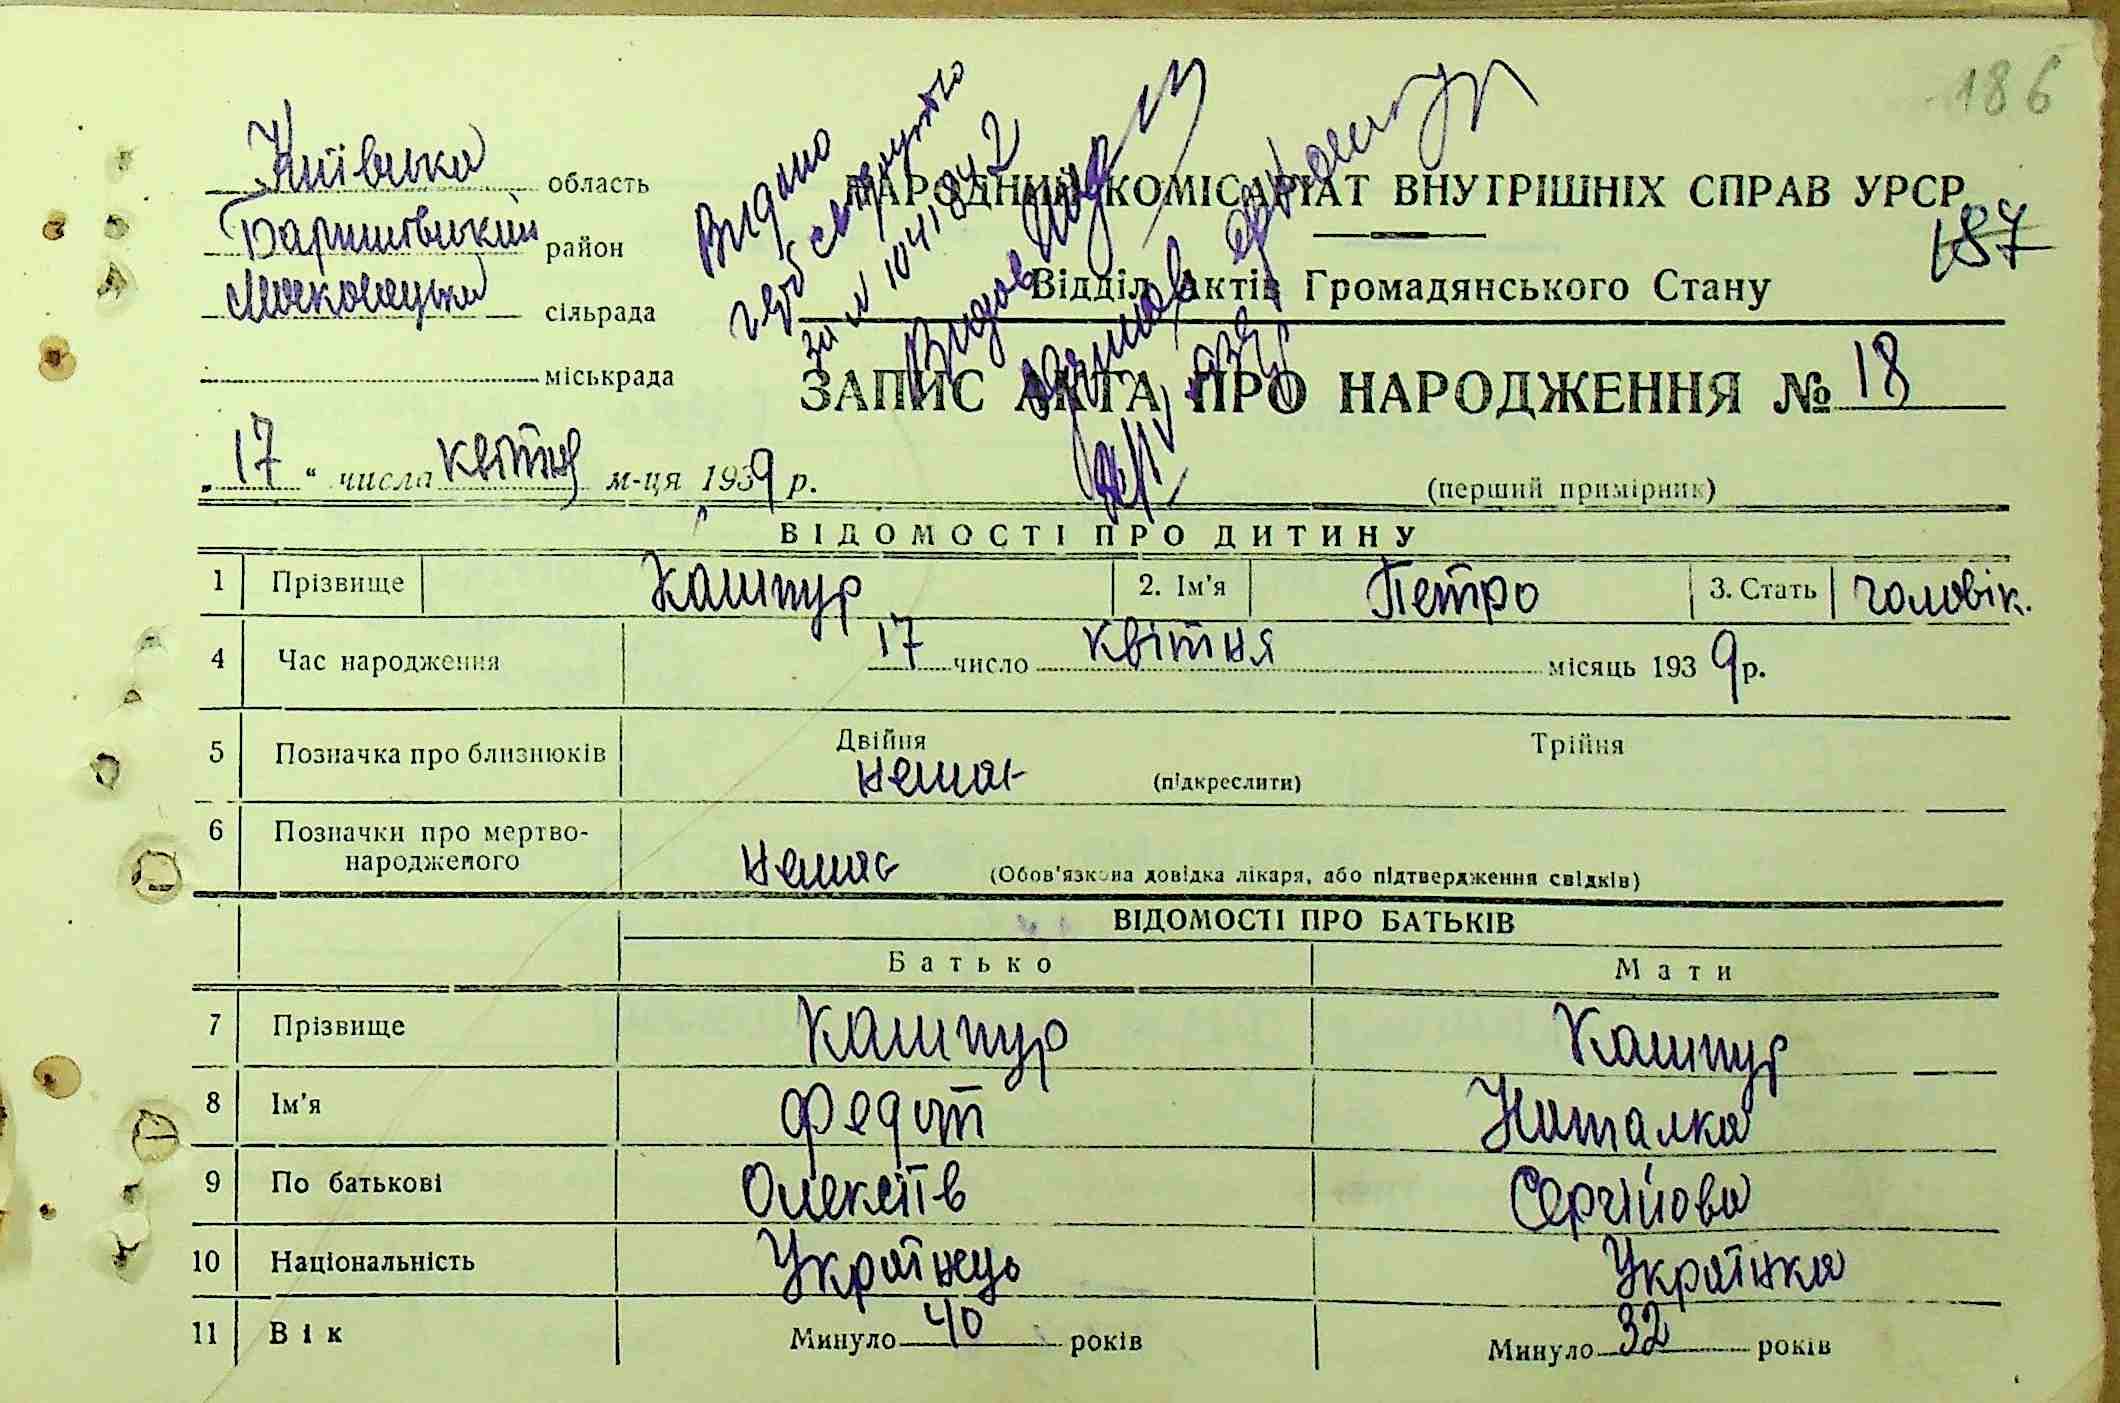 186
Київська область
Баришівський район
сільрада
міськрада
Видано
за № 1041842
НАРОДНИЙ КОМІСАРІАТ ВНУТРІШНІХ СПРАВ УРСР
187
Відділ Актів Громадянського Стану
ЗАПИС АКТА ПРО НАРОДЖЕННЯ № 18
„17“ числа квітня м-ця 1939 р.
(перший примірник)
ВІДОМОСТІ ПРО ДИТИНУ
1 Прізвище Кашпур 2. Ім'я Петро 3. Стать чоловік.
4 Час народження 17 число квітня місяць 1939 р.
5 Позначка про близнюків Двійня Трійня
немає (підкреслити)
6 Позначки про мертво-
народженого немає (Обов'язкова довідка лікаря, або підтвердження свідків)
ВІДОМОСТІ ПРО БАТЬКІВ
Батько Мати
7 Прізвище Кашпур Кашпур
8 Ім'я Федот Наталка
9 По батькові Олексіїв Сергійова
10 Національність Українець Українка
11 Вік Минуло 40 років Минуло 32 років